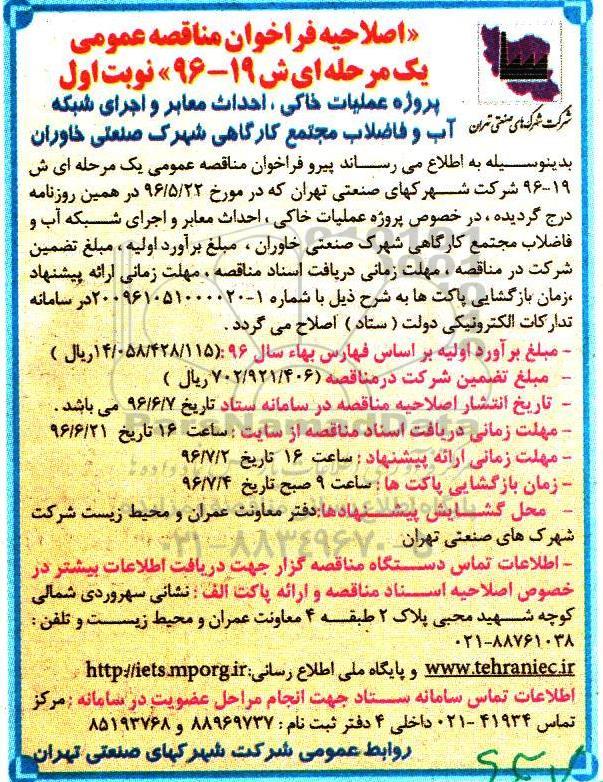 «اصلاحیه فراخوان مناقصه عمومی
یک مرحله ای ش ۱۹-۹۶» نوبت اول
شرکت شهرک‌های صنعتی تهران
پروژه عملیات خاکی ، احداث معابر و اجرای شبکه
آب و فاضلاب مجتمع کارگاهی شهرک صنعتی خاوران
بدینوسیله به اطلاع می رساند پیرو فراخوان مناقصه عمومی یک مرحله ای ش
۱۹-۹۶ شرکت شهرکهای صنعتی تهران که در مورخ ۹۶/۵/۲۲ در همین روزنامه
درج گردیده ، در خصوص پروژه عملیات خاکی ، احداث معابر و اجرای شبکه آب و
فاضلاب مجتمع کارگاهی شهرک صنعتی خاوران ، مبلغ برآورد اولیه ، مبلغ تضمین
شرکت در مناقصه ، مهلت زمانی دریافت اسناد مناقصه ، مهلت زمانی ارائه پیشنهاد
،زمان بازگشایی پاکت ها به شرح ذیل با شماره ۱-۲۰۰۹۶۱۰۵۱۰۰۰۰۲۰در سامانه
تدارکات الکترونیکی دولت ( ستاد ) اصلاح می گردد .
- مبلغ برآورد اولیه بر اساس فهارس بهاء سال ۹۶ :(۱۴/۰۵۸/۴۲۸/۱۱۵ریال )
- مبلغ تضمین شرکت درمناقصه (۷۰۲/۹۲۱/۴۰۶ ریال )
- تاریخ انتشار اصلاحیه مناقصه در سامانه ستاد تاریخ ۹۶/۶/۷ می باشد .
- مهلت زمانی دریافت اسناد مناقصه از سایت : ساعت ۱۶ تاریخ ۹۶/۶/۲۱
- مهلت زمانی ارائه پیشنهاد : ساعت ۱۶ تاریخ ۹۶/۷/۲
- زمان بازگشایی پاکت ها : ساعت ۹ صبح تاریخ ۹۶/۷/۴
- محل گشایش پیشنهادها:دفتر معاونت عمران و محیط زیست شرکت
شهرک های صنعتی تهران
- اطلاعات تماس دستگاه مناقصه گزار جهت دریافت اطلاعات بیشتر در
خصوص اصلاحیه اسناد مناقصه و ارائه پاکت الف : نشانی سهروردی شمالی
کوچه شهید محبی پلاک ۲ طبقه ۴ معاونت عمران و محیط زیست و تلفن :
۰۲۱-۸۸۷۶۱۰۳۸
www.tehraniec.ir و پایگاه ملی اطلاع رسانی:http://iets.mporg.ir
اطلاعات تماس سامانه ستاد جهت انجام مراحل عضویت در سامانه : مرکز
تماس ۴۱۹۳۴ -۰۲۱ داخلی ۴ دفتر ثبت نام : ۸۸۹۶۹۷۳۷ و ۸۵۱۹۳۷۶۸
روابط عمومی شرکت شهرکهای صنعتی تهران
۰۲۱-۸۸۳۴۹۶۷۰-۵